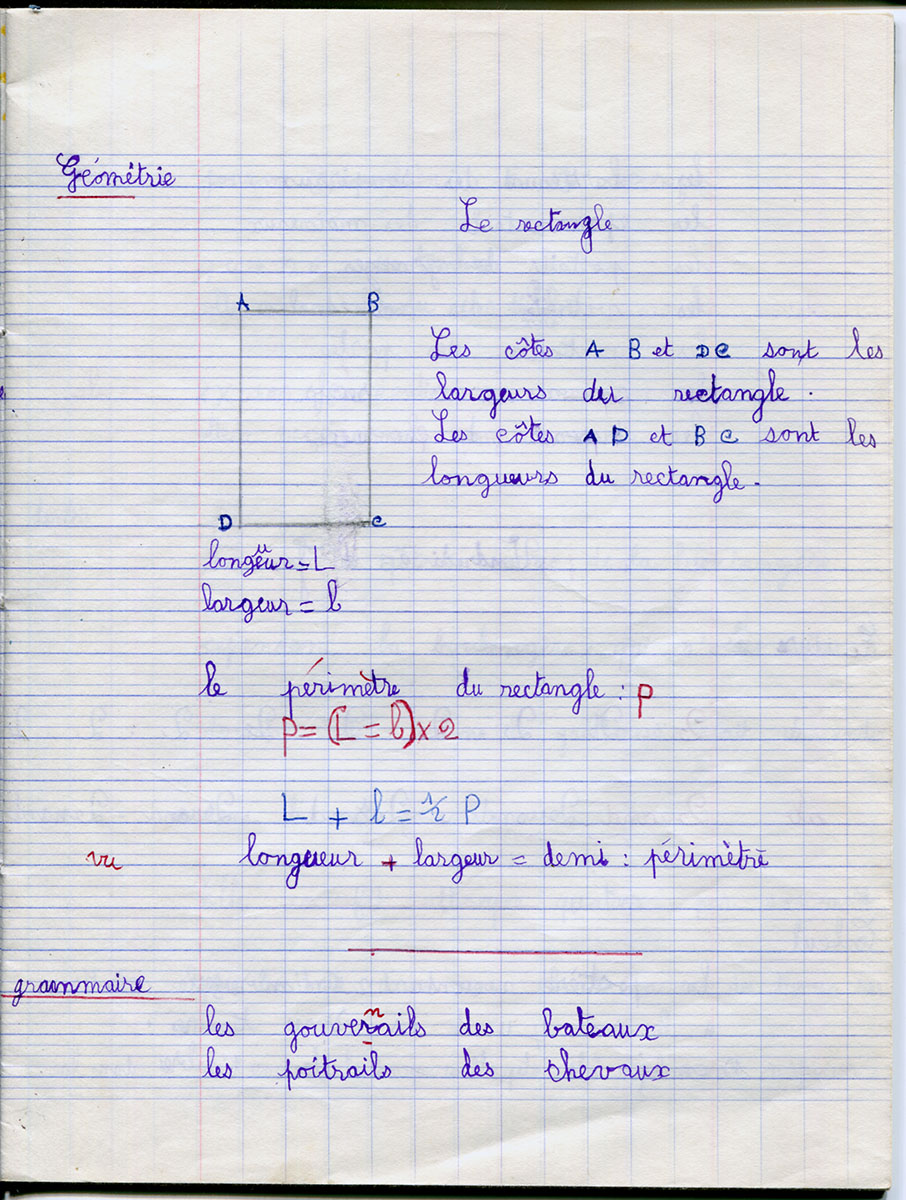 Géométrie
Le rectangle
A B
Les côtes A B et DC sont les
largeurs du rectangle.
Les côtes AD et BC sont les
longueurs du rectangle.
D C
longueur = L
largeur = l
le périmètre du rectangle : P
P = (L = l) x 2
L + l = 1/2 P
vu longueur + largeur = demi : périmètre
grammaire
les gouvernails des bateaux
les poitrails des chevaux